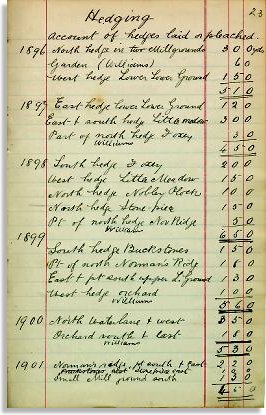 23
Hedging
Account of hedges laid or pleached.
1896 North hedge in two Mill grounds 300 yds
Garden (Williams) 60
West hedge Lower Lover Ground 150
510
1897 East hedge Lower Lover Ground 120
East & South hedge Little Meadow 300
Part of North hedge Foxey 30
Williams
450
1898 South hedge Foxey 200
West hedge Little Meadow 150
North hedge Nobley 100
North hedge Stone 150
Pt of North hedge Nor Ridge 50
William
650
1899
South hedge Buckstones 150
Pt of North Norman's Ridge 180
East & pt South upper L. Ground 130
West hedge orchard 100
Williams
560
1900 North Waterlane & West 350
Orchard South & East 180
Williams
530
1901 Norman's Ridge, pt South & East
Small Mill ground South 130